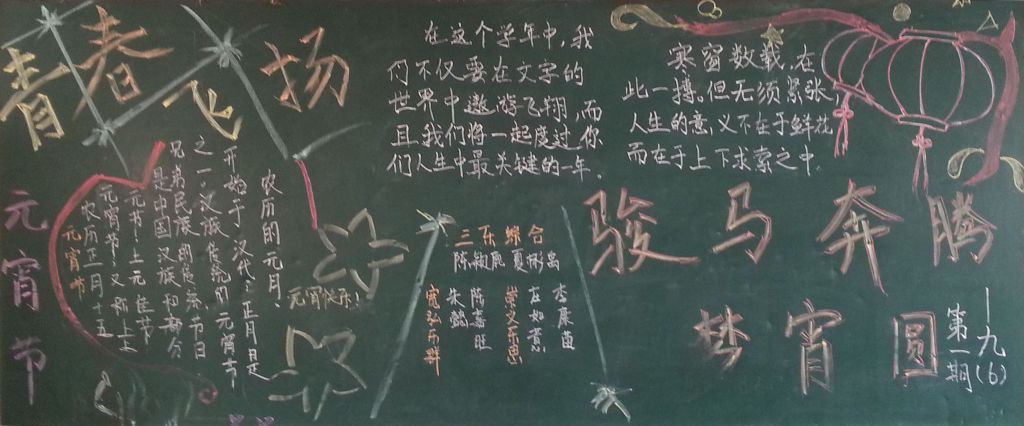 青春飞扬
在这个学年中,我
们不仅要在文字的
世界中遨游飞翔,而
且我们将一起度过,你
们人生中最关键的一年.
寒窗数载,在
此一搏。但无须紧张,
人生的意义不在于鲜花
而在于上下求索之中.
骏马奔腾
梦宵圆
第一期
一九(6)
元宵节
元宵节
农历正月十五
元宵节,又称上
元节,上元佳节
是中国汉族和部分
兄弟民族的传统节日
之一,义
传统的元宵节
开始于汉代,正月是
农历的元月,
元宵快乐!
三东综合
夏彬
宽弘乐群
朱懿
陈嘉旺
崇义乐思
左如意
李